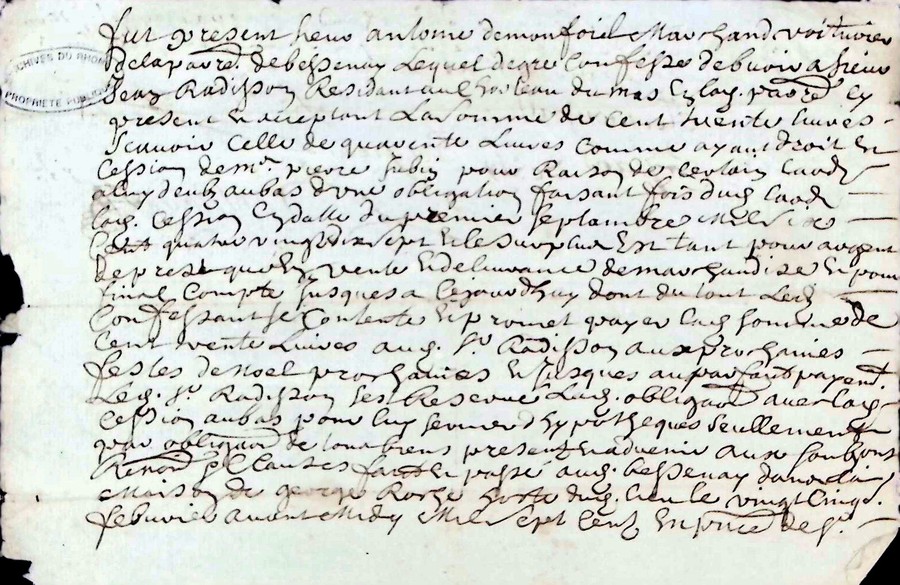 fut present sieur antoine demonfoil Marchand voiturier
de la parr.e de bessenay Lequel de gre Confesse debvoir a sieur
Jean Radisson Residant au Chateau du mas En lad. parr.e Cy
present Et acceptant La somme de Cent trente livres
Scavoir Celle de quarente Livres Comme ayant droit Et
Cession de M.r pierre Subin pour Raison de Certain
au bas d'une obligation faisant fois dud.
lad. Cession En datte du premier septambre Mil six
Cent quatre vingt dix sept Et le surplus Est tant pour argent
de prest que En vente Et delivrance de marchandise Et pour
final Compte Jusques a Cejourdhuy dont du tout Led.
Confessant se Contente Et promet payer lad. somme de
Cent trente Livres aud. S.r Radisson aux prochaines
festes de Noel prochaines Et Jusques au parfait payem.t
Led. S.r Radisson s'est Reservé Lad. obligaon avec lad.
Cession au bas pour luy servir d'hypotheques seullement
par obligaon de tous biens presents Et advenir aux soubmis
Renon.s Et Clauses fait Et passé aud. bessenay dans la
Maison de george Roche hoste dud. Lieu le vingt Cinq.e
febvrier avant Midy Mil sept Cent En pnce de S.r
ARCHIVES DU RHONE
PROPRIETE PUBLIQUE